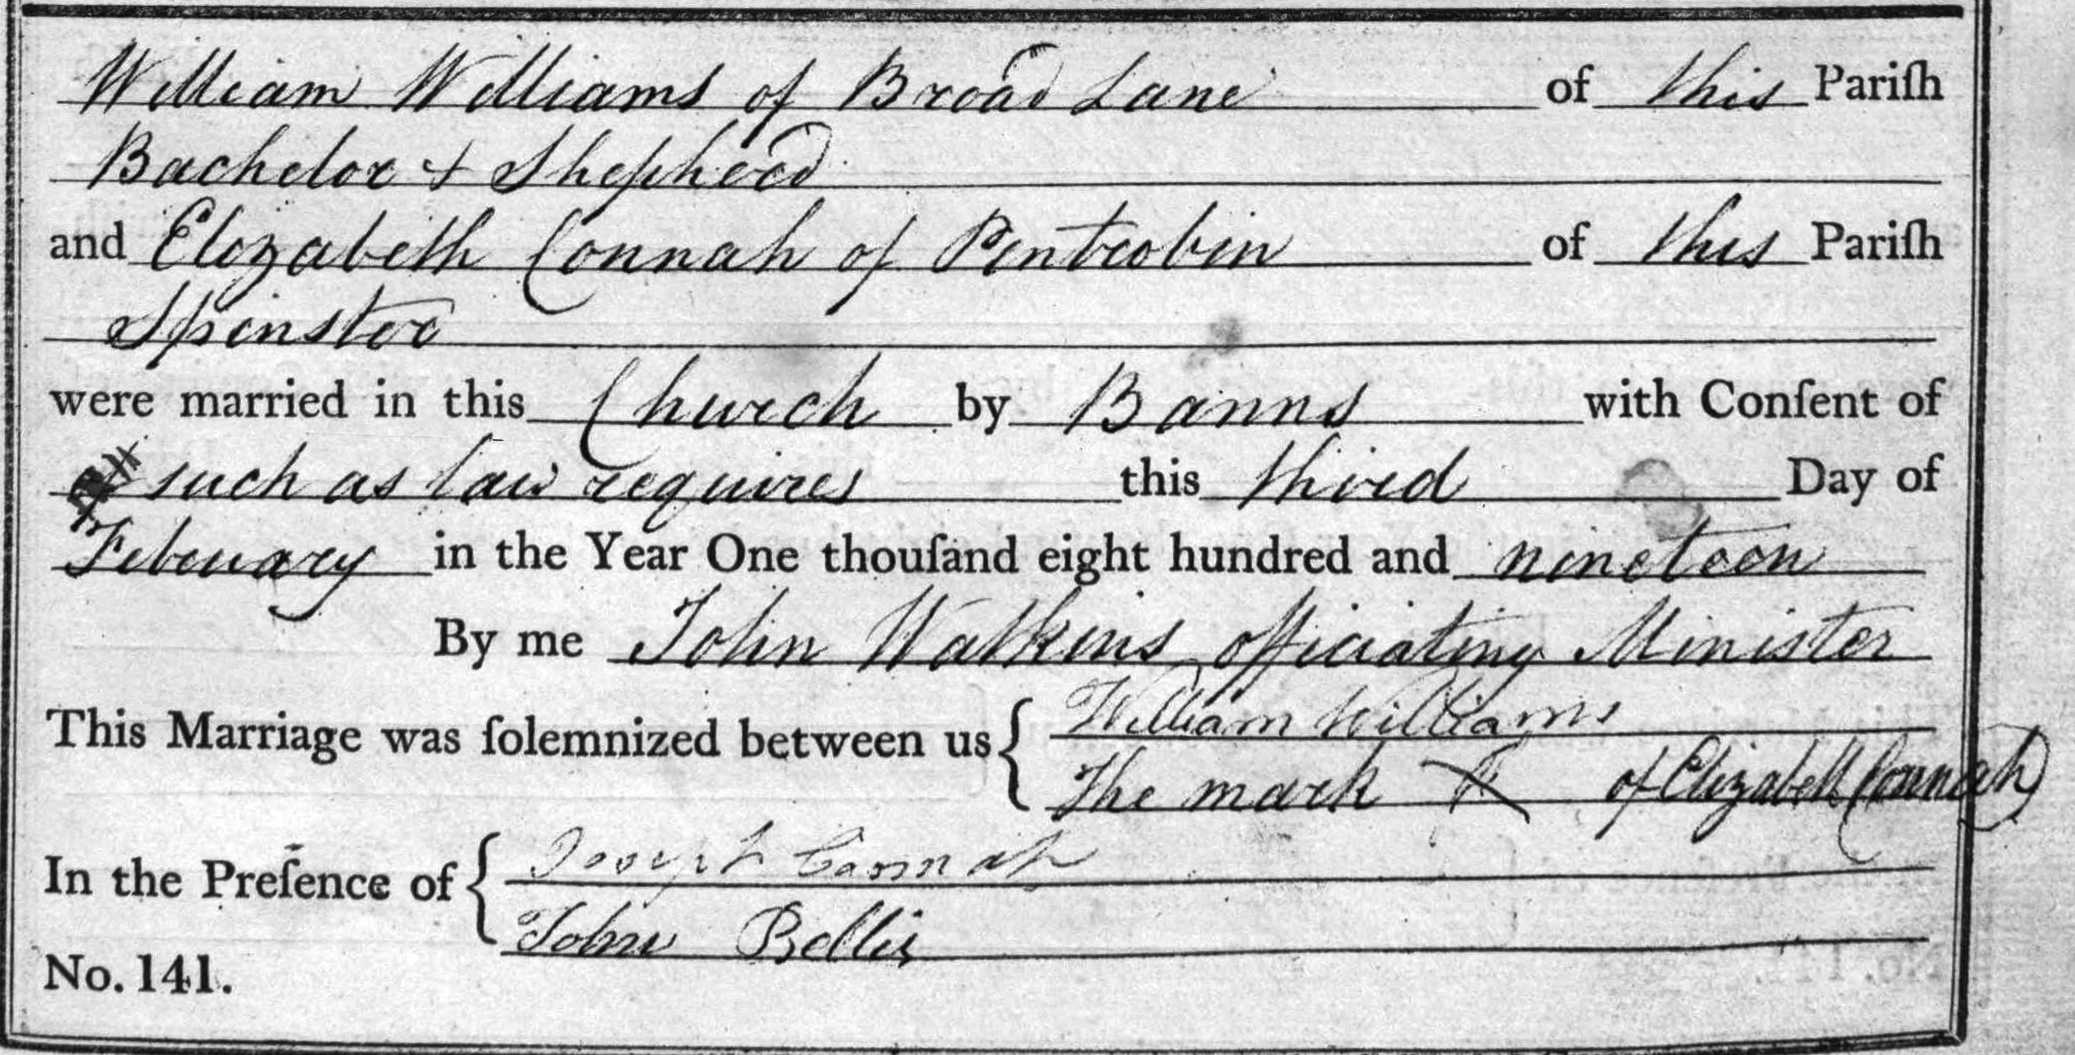 William Williams of Broad Lane of this Pariſh
Bachelor & Shepherd
and Elizabeth Connah of Pentrobin of this Pariſh
Spinster
were married in this Church by Banns with Conſent of
such as law requires this third Day of
February in the Year One thouſand eight hundred and nineteen
By me John Watkins officiating Minister
This Marriage was ſolemnized between us { William Williams
The mark X of Elizabeth Connah
In the Preſence of { Joseph Connah
John Bellis
No. 141.